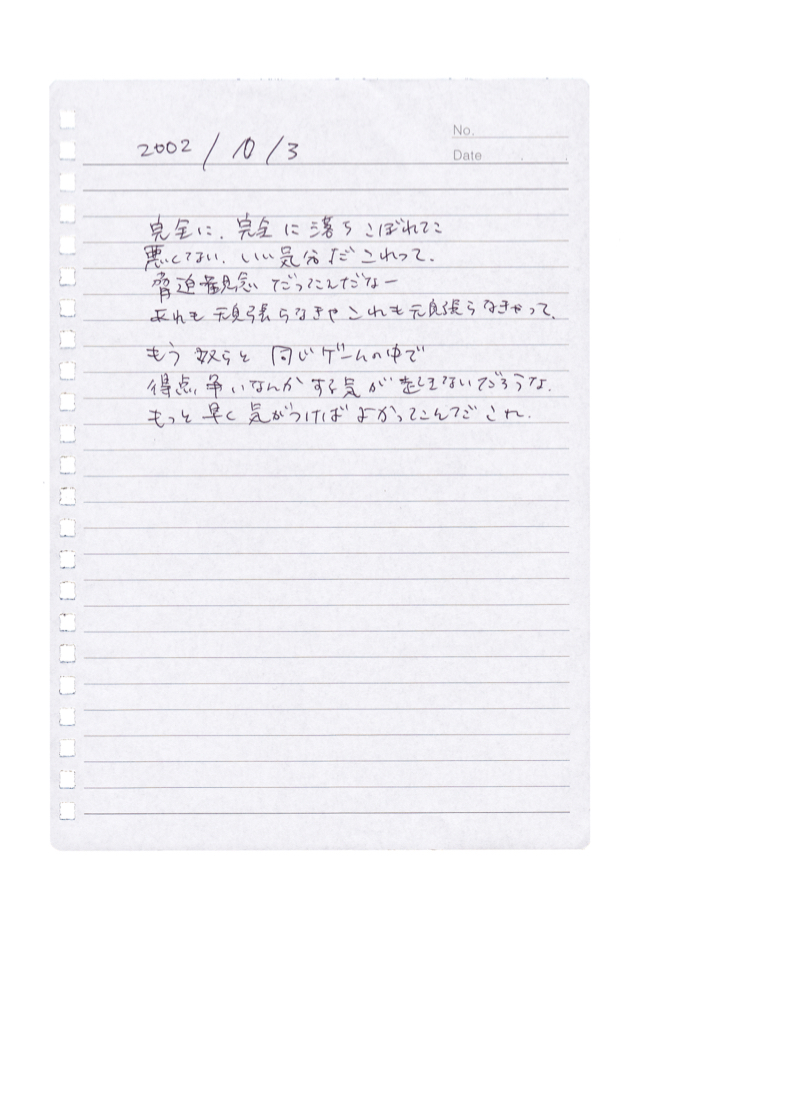 No.
2002/10/3
Date
完全に、完全に落ちこぼれてた
悪くてない、いい気分だこれって、
脅迫観念だってんだなー
あれも頑張らなきゃこれも頑張らなきゃって、
もう奴らと同じゲームの中で
得点争いなんかする気が起きないだろうな、
もっと早く気がつけばよかってたんだこれ、